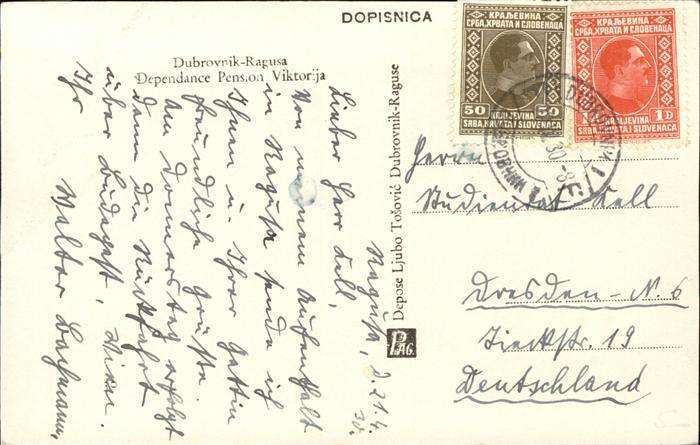 DOPISNICA
Dubrovnik-Ragusa
Dependance Pension Viktorija
КРАЉЕВИНА
СРБА, ХРВАТА И СЛОВЕНАЦА
50 50
KRALJEVINA
SRBA, HRVATA I SLOVENACA
КРАЉЕВИНА
СРБА, ХРВАТА И СЛОВЕНАЦА
1Д 1D
KRALJEVINA
SRBA, HRVATA I SLOVENACA
Ragusa, d. 21.4.
30.
Lieber Herr Kell,
Von meinem Aufenthalt
in Ragusa sende ich
Ihnen u. Ihrer Gattin
freundliche Grüße.
Am Donnerstag erfolgt
dann die Rückfahrt
über Budapest, Wien.
Ihr
Walter Bachmann
Depose Ljubo Tošović Dubrovnik-Raguse
PAG.
Herrn
Studienrat Kell
Dresden-N. 6
Tieckstr. 19
Deutschland